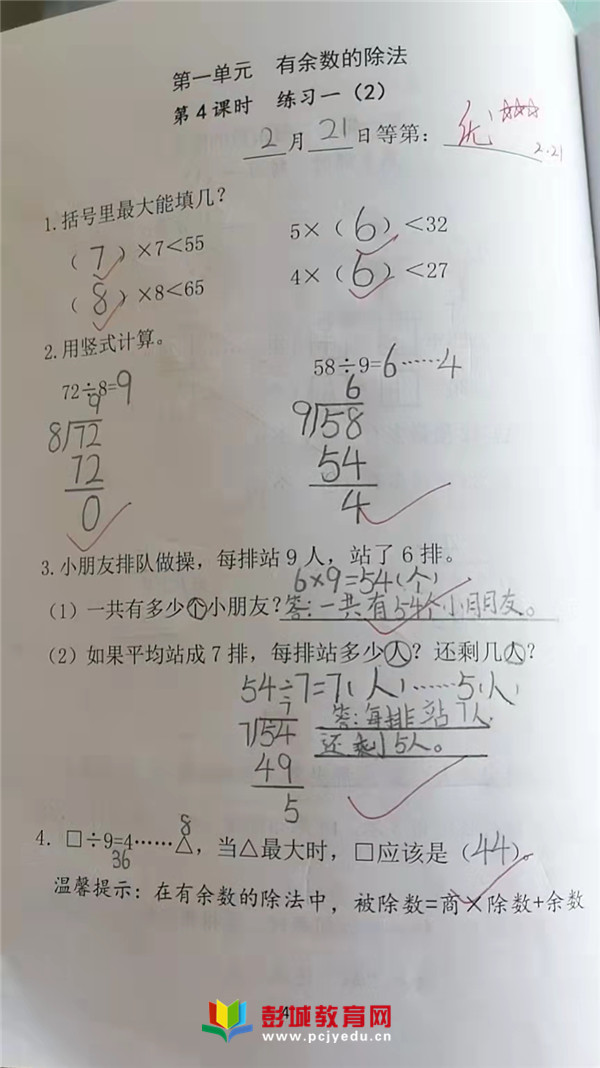 第一单元 有余数的除法
第4课时 练习一（2）
2月21日等第：优 ☆☆☆
2.21
1.括号里最大能填几？
（7）×7<55 5×（6）<32
（8）×8<65 4×（6）<27
2.用竖式计算。
72÷8=9 58÷9=6……4
9 6
8√72 9√58
72 54
0 4
3.小朋友排队做操，每排站9人，站了6排。
6×9=54(个)
（1）一共有多少个小朋友？答:一共有54个小朋友。
（2）如果平均站成7排，每排站多少人？还剩几人？
54÷7=7(人)……5(人)
7 答:每排站7人,
7√54 还剩5人。
49
5
8
4. □÷9=4……△，当△最大时，□应该是（44）。
36
温馨提示：在有余数的除法中，被除数=商×除数+余数
4
彭城教育网
www.pcjyedu.cn